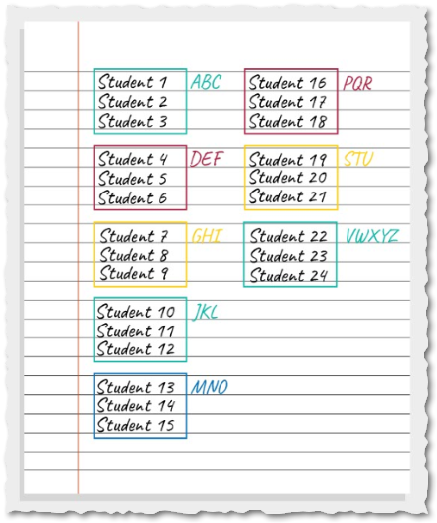 Student 1 ABC
Student 2
Student 3
Student 4 DEF
Student 5
Student 6
Student 7 GHI
Student 8
Student 9
Student 10 JKL
Student 11
Student 12
Student 13 MNO
Student 14
Student 15
Student 16 PQR
Student 17
Student 18
Student 19 STU
Student 20
Student 21
Student 22 VWXYZ
Student 23
Student 24